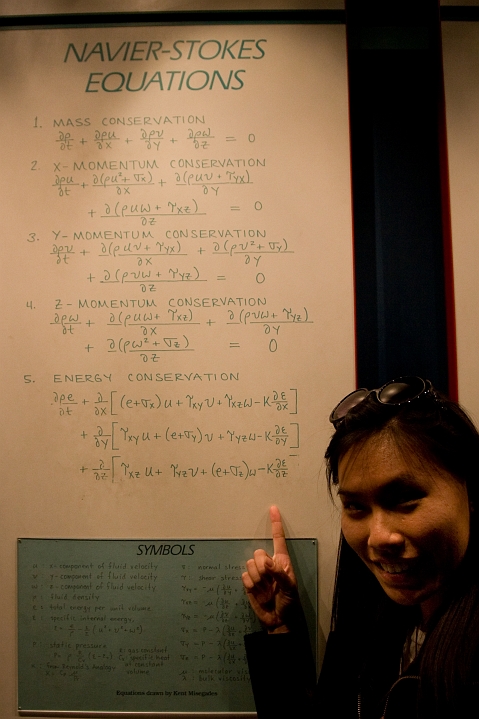 NAVIER-STOKES
EQUATIONS
1. MASS CONSERVATION
∂ρ/∂t + ∂ρu/∂x + ∂ρv/∂y + ∂ρw/∂z = 0
2. X-MOMENTUM CONSERVATION
∂ρu/∂t + ∂(ρu²+σx)/∂x + ∂(ρuv+τyx)/∂y
+ ∂(ρuw+τxz)/∂z = 0
3. Y-MOMENTUM CONSERVATION
∂ρv/∂t + ∂(ρuv+τyx)/∂x + ∂(ρv²+σy)/∂y
+ ∂(ρvw+τyz)/∂z = 0
4. Z-MOMENTUM CONSERVATION
∂ρw/∂t + ∂(ρuw+τxz)/∂x + ∂(ρvw+τyz)/∂y
+ ∂(ρw²+σz)/∂z = 0
5. ENERGY CONSERVATION
∂ρe/∂t + ∂/∂x[(e+σx)u+τxyv+τxzw-K∂ε/∂x]
+ ∂/∂y[τxyu+(e+σy)v+τyzw-K∂ε/∂y]
+ ∂/∂z[τxzu+τyzv+(e+σz)w-K∂ε/∂z
SYMBOLS
u : x-component of fluid velocity
v : y-component of fluid velocity
w : z-component of fluid velocity
: fluid density
: total energy per unit volume
: specific internal energy,
: static pressure
: normal stress
: shear stress
Equations drawn by Kent Misegades